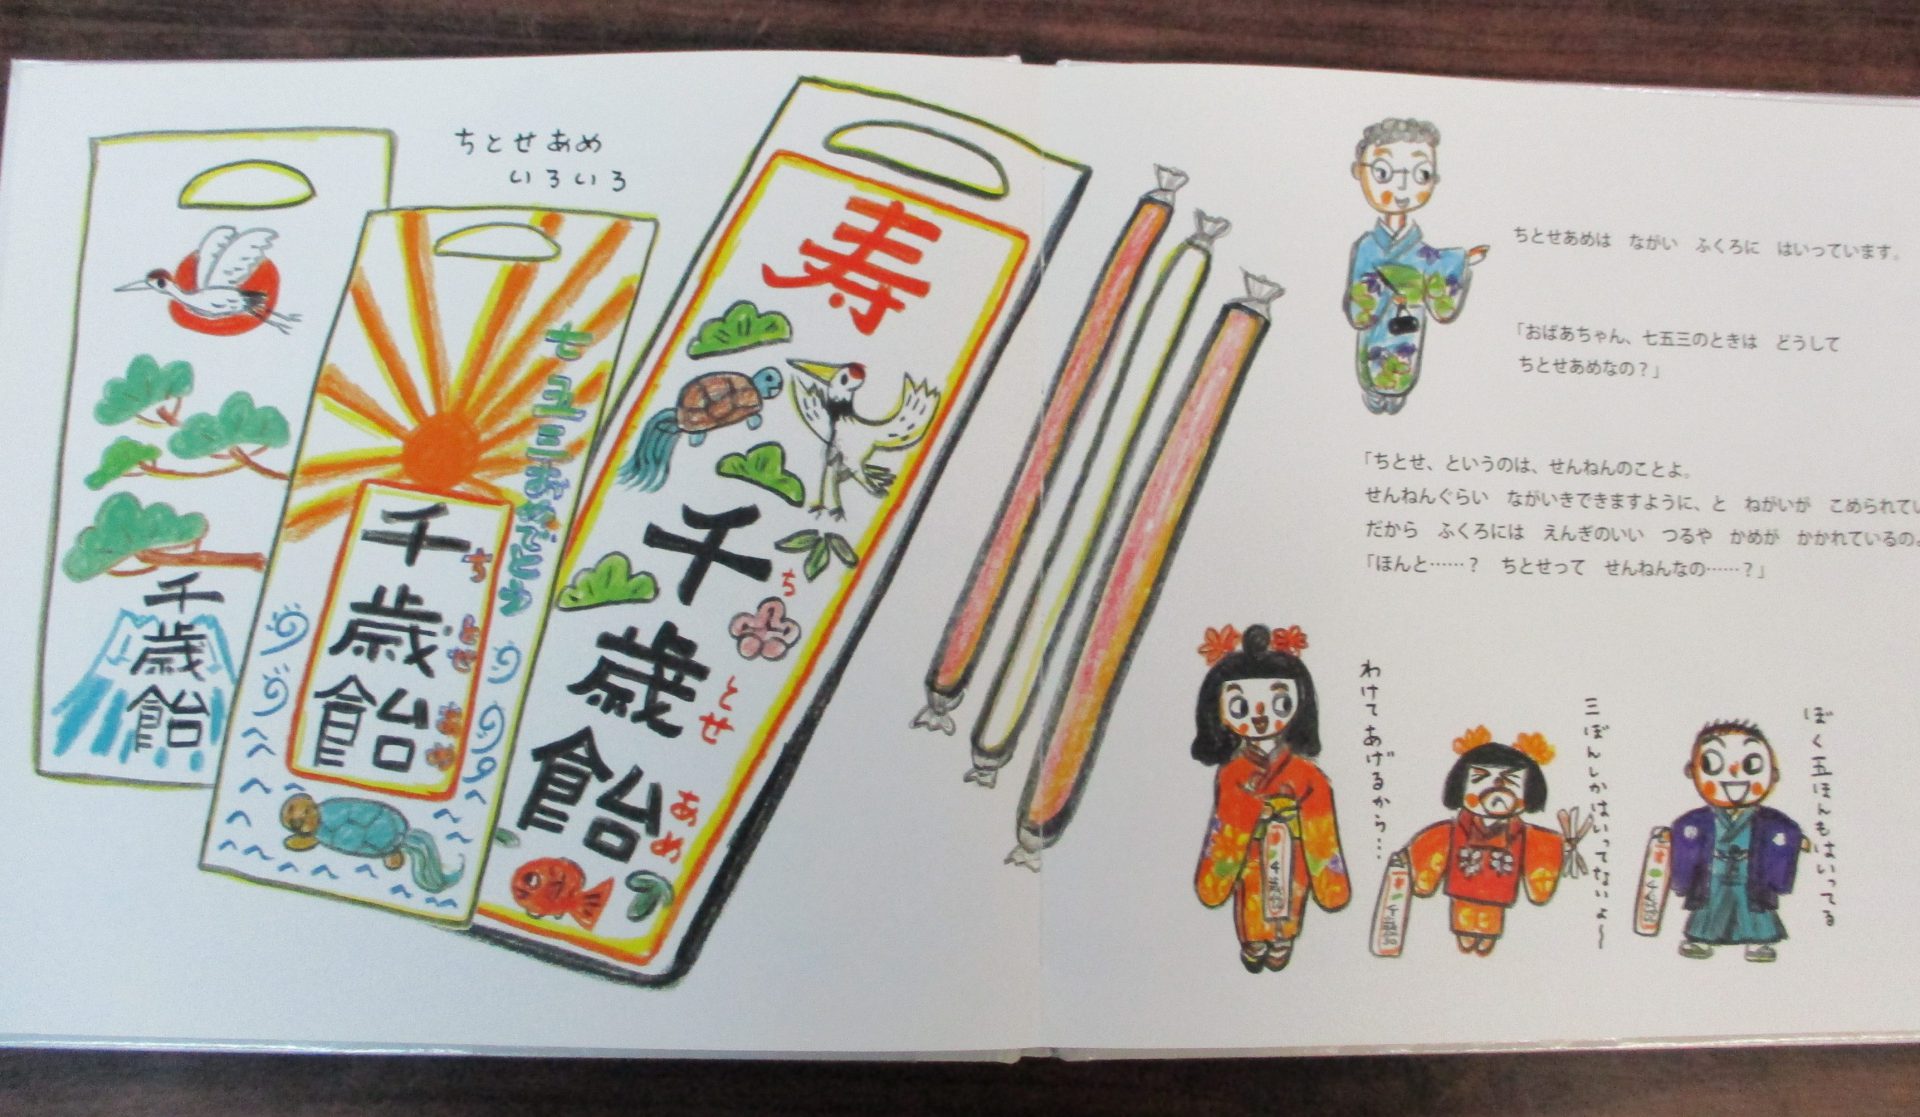 ちとせあめ
いろいろ
千歳飴
七五三おめでとう
千歳飴
ちとせあめ
寿
千歳飴
ちとせあめ
ちとせあめは ながい ふくろに はいっています。
「おばあちゃん、七五三のときは どうして
ちとせあめなの？」
「ちとせ、というのは、せんねんのことよ。
せんねんぐらい ながいきできますように、と ねがいが こめられてい
だから ふくろには えんぎのいい つるや かめが かかれているのよ
「ほんと……？ ちとせって せんねんなの……？」
わけてあげるから…
三ぼんしかはいってないよ〜
ぼく五ほんもはいってる
千歳飴
千歳飴
千歳飴